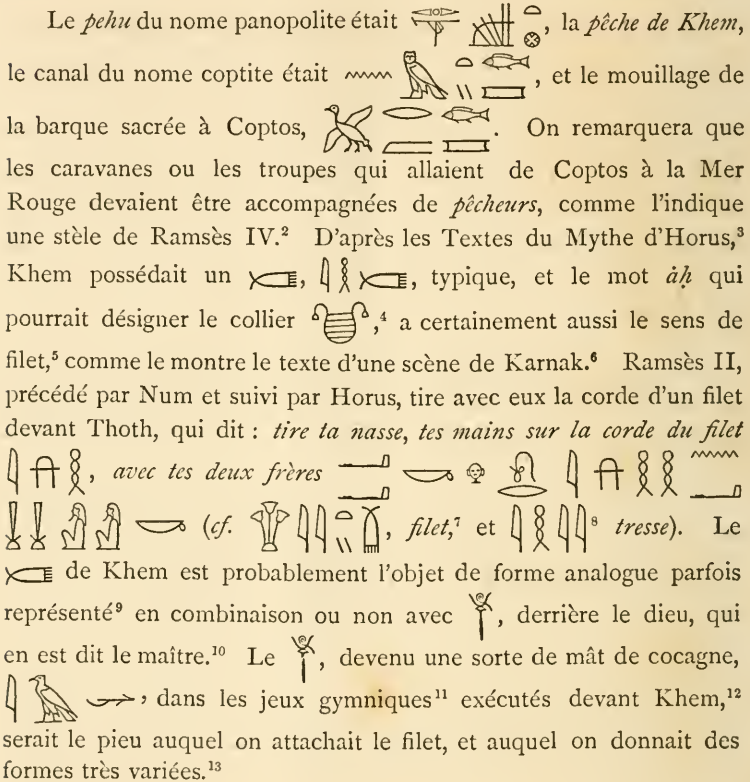 Le pehu du nome panopolite était , la pêche de Khem,
le canal du nome coptite était , et le mouillage de
la barque sacrée à Coptos, . On remarquera que
les caravanes ou les troupes qui allaient de Coptos à la Mer
Rouge devaient être accompagnées de pêcheurs, comme l'indique
une stèle de Ramsès IV.² D'après les Textes du Mythe d'Horus,³
Khem possédait un , , typique, et le mot àḥ qui
pourrait désigner le collier ,⁴ a certainement aussi le sens de
filet,⁵ comme le montre le texte d'une scène de Karnak.⁶ Ramsès II,
précédé par Num et suivi par Horus, tire avec eux la corde d'un filet
devant Thoth, qui dit : tire ta nasse, tes mains sur la corde du filet
, avec tes deux frères
(cf. , filet,⁷ et ⁸ tresse). Le
de Khem est probablement l'objet de forme analogue parfois
représenté⁹ en combinaison ou non avec , derrière le dieu, qui
en est dit le maître.¹⁰ Le , devenu une sorte de mât de cocagne,
, dans les jeux gymniques¹¹ exécutés devant Khem,¹²
serait le pieu auquel on attachait le filet, et auquel on donnait des
formes très variées.¹³